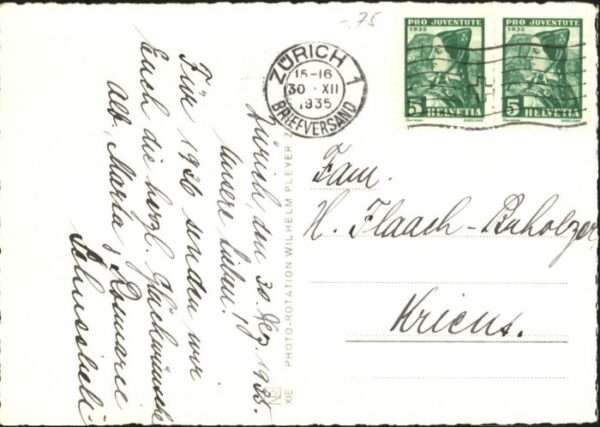 -.75
PRO JUVENTUTE
1935
5
HELVETIA
PRO JUVENTUTE
1935
5
HELVETIA
ZÜRICH 1
15-16
30.XII
1935
BRIEFVERSAND
Zürich, den 30. Dez. 1935.
Unsere Lieben!
Für 1936 senden wir
Euch die herzl. Glückwünsche
Alb, Marta & Rosmarie
PHOTO-ROTATION WILHELM PLEYER Z
XIE
Fam.
H. Flaach-Buholzer
Kriens.